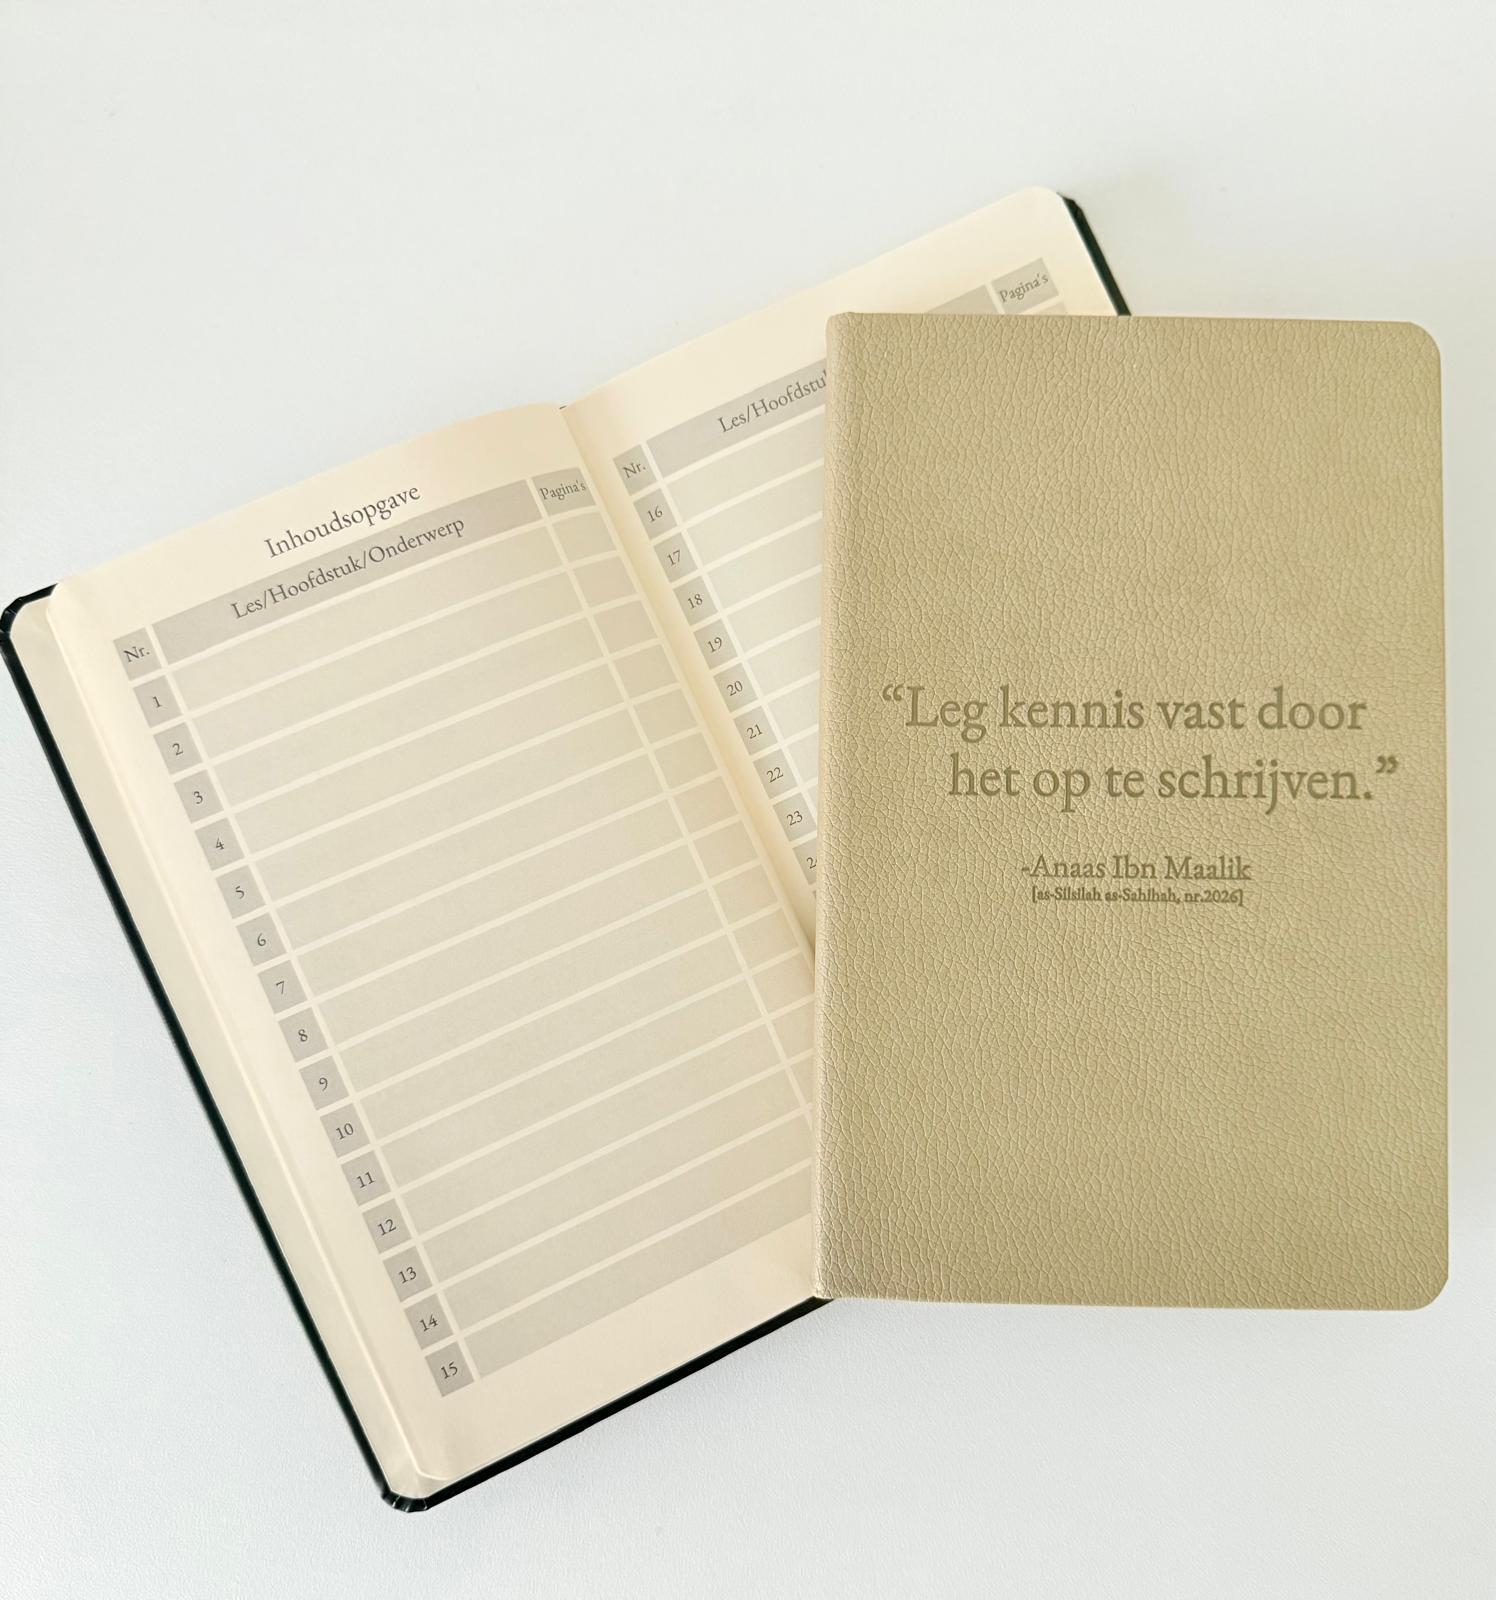 Inhoudsopgave
Nr. Les/Hoofdstuk/Onderwerp Pagina's
1
2
3
4
5
6
7
8
9
10
11
12
13
14
15
Nr. Pagina's
16
17
18
19
20
21
22
23
“Leg kennis vast door
het op te schrijven.”
-Anaas Ibn Maalik
[as-Silsilah as-Sahihah, nr.2026]